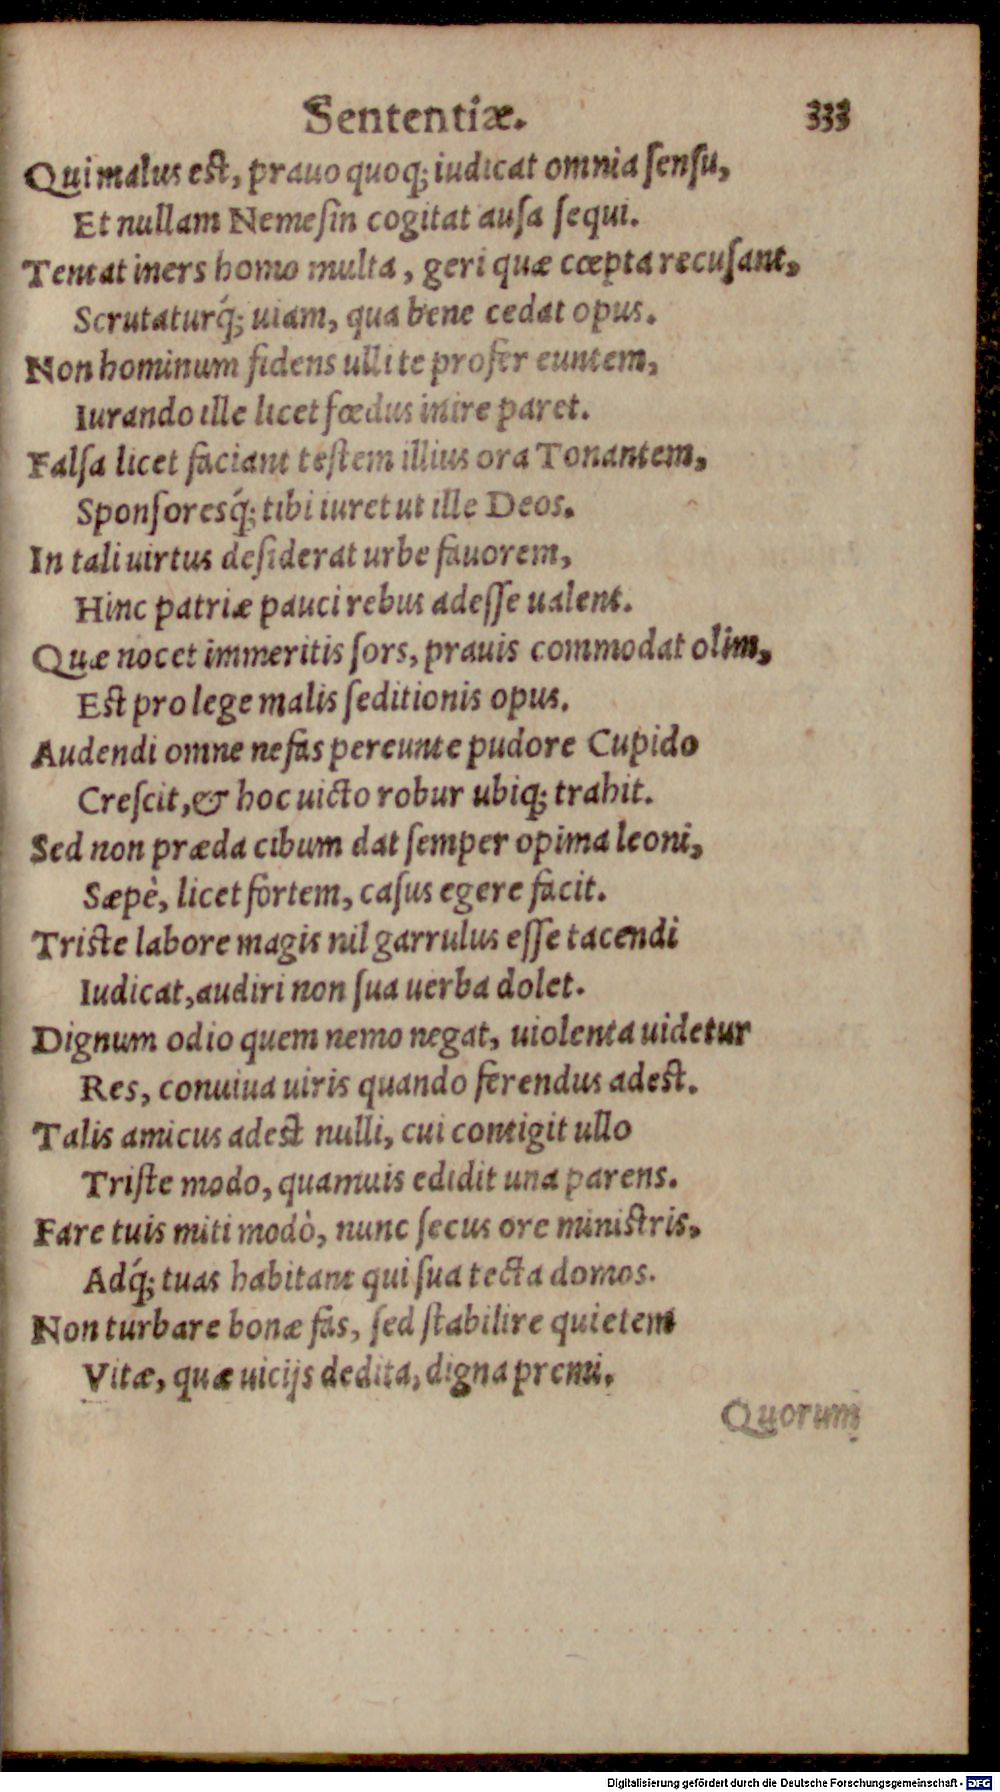 Sententiæ. 333
Qui malus est, prauo quoq; iudicat omnia ſenſu,
Et nullam Nemeſin cogitat auſa ſequi.
Tentat iners homo multa, geri quæ cœpta recuſant,
Scrutaturq́; uiam, qua bene cedat opus.
Non hominum fidens ulli te profer euntem,
Iurando ille licet fœdus inire paret.
Falſa licet faciant teſtem illius ora Tonantem,
Sponſoresq́; tibi iuret ut ille Deos.
In tali uirtus deſiderat urbe fauorem,
Hinc patriæ pauci rebus adeſſe ualent.
Quæ nocet immeritis ſors, prauis commodat olim,
Est pro lege malis ſeditionis opus.
Audendi omne nefas pereunte pudore Cupido
Creſcit, & hoc uicto robur ubiq; trahit.
Sed non præda cibum dat ſemper opima leoni,
Sæpè, licet fortem, caſus egere facit.
Triste labore magis nil garrulus eſſe tacendi
Iudicat, audiri non ſua uerba dolet.
Dignum odio quem nemo negat, uiolenta uidetur
Res, conuiua uiris quando ferendus adest.
Talis amicus adest nulli, cui contigit ullo
Triſte modo, quamuis edidit una parens.
Fare tuis miti modò, nunc ſecus ore ministris,
Adq́; tuas habitant qui ſua tecta domos.
Non turbare bonæ fas, ſed ſtabilire quietem
Vitæ, quæ uicijs dedita, digna premi.
Quorum
Digitalisierung gefördert durch die Deutsche Forschungsgemeinschaft - DFG